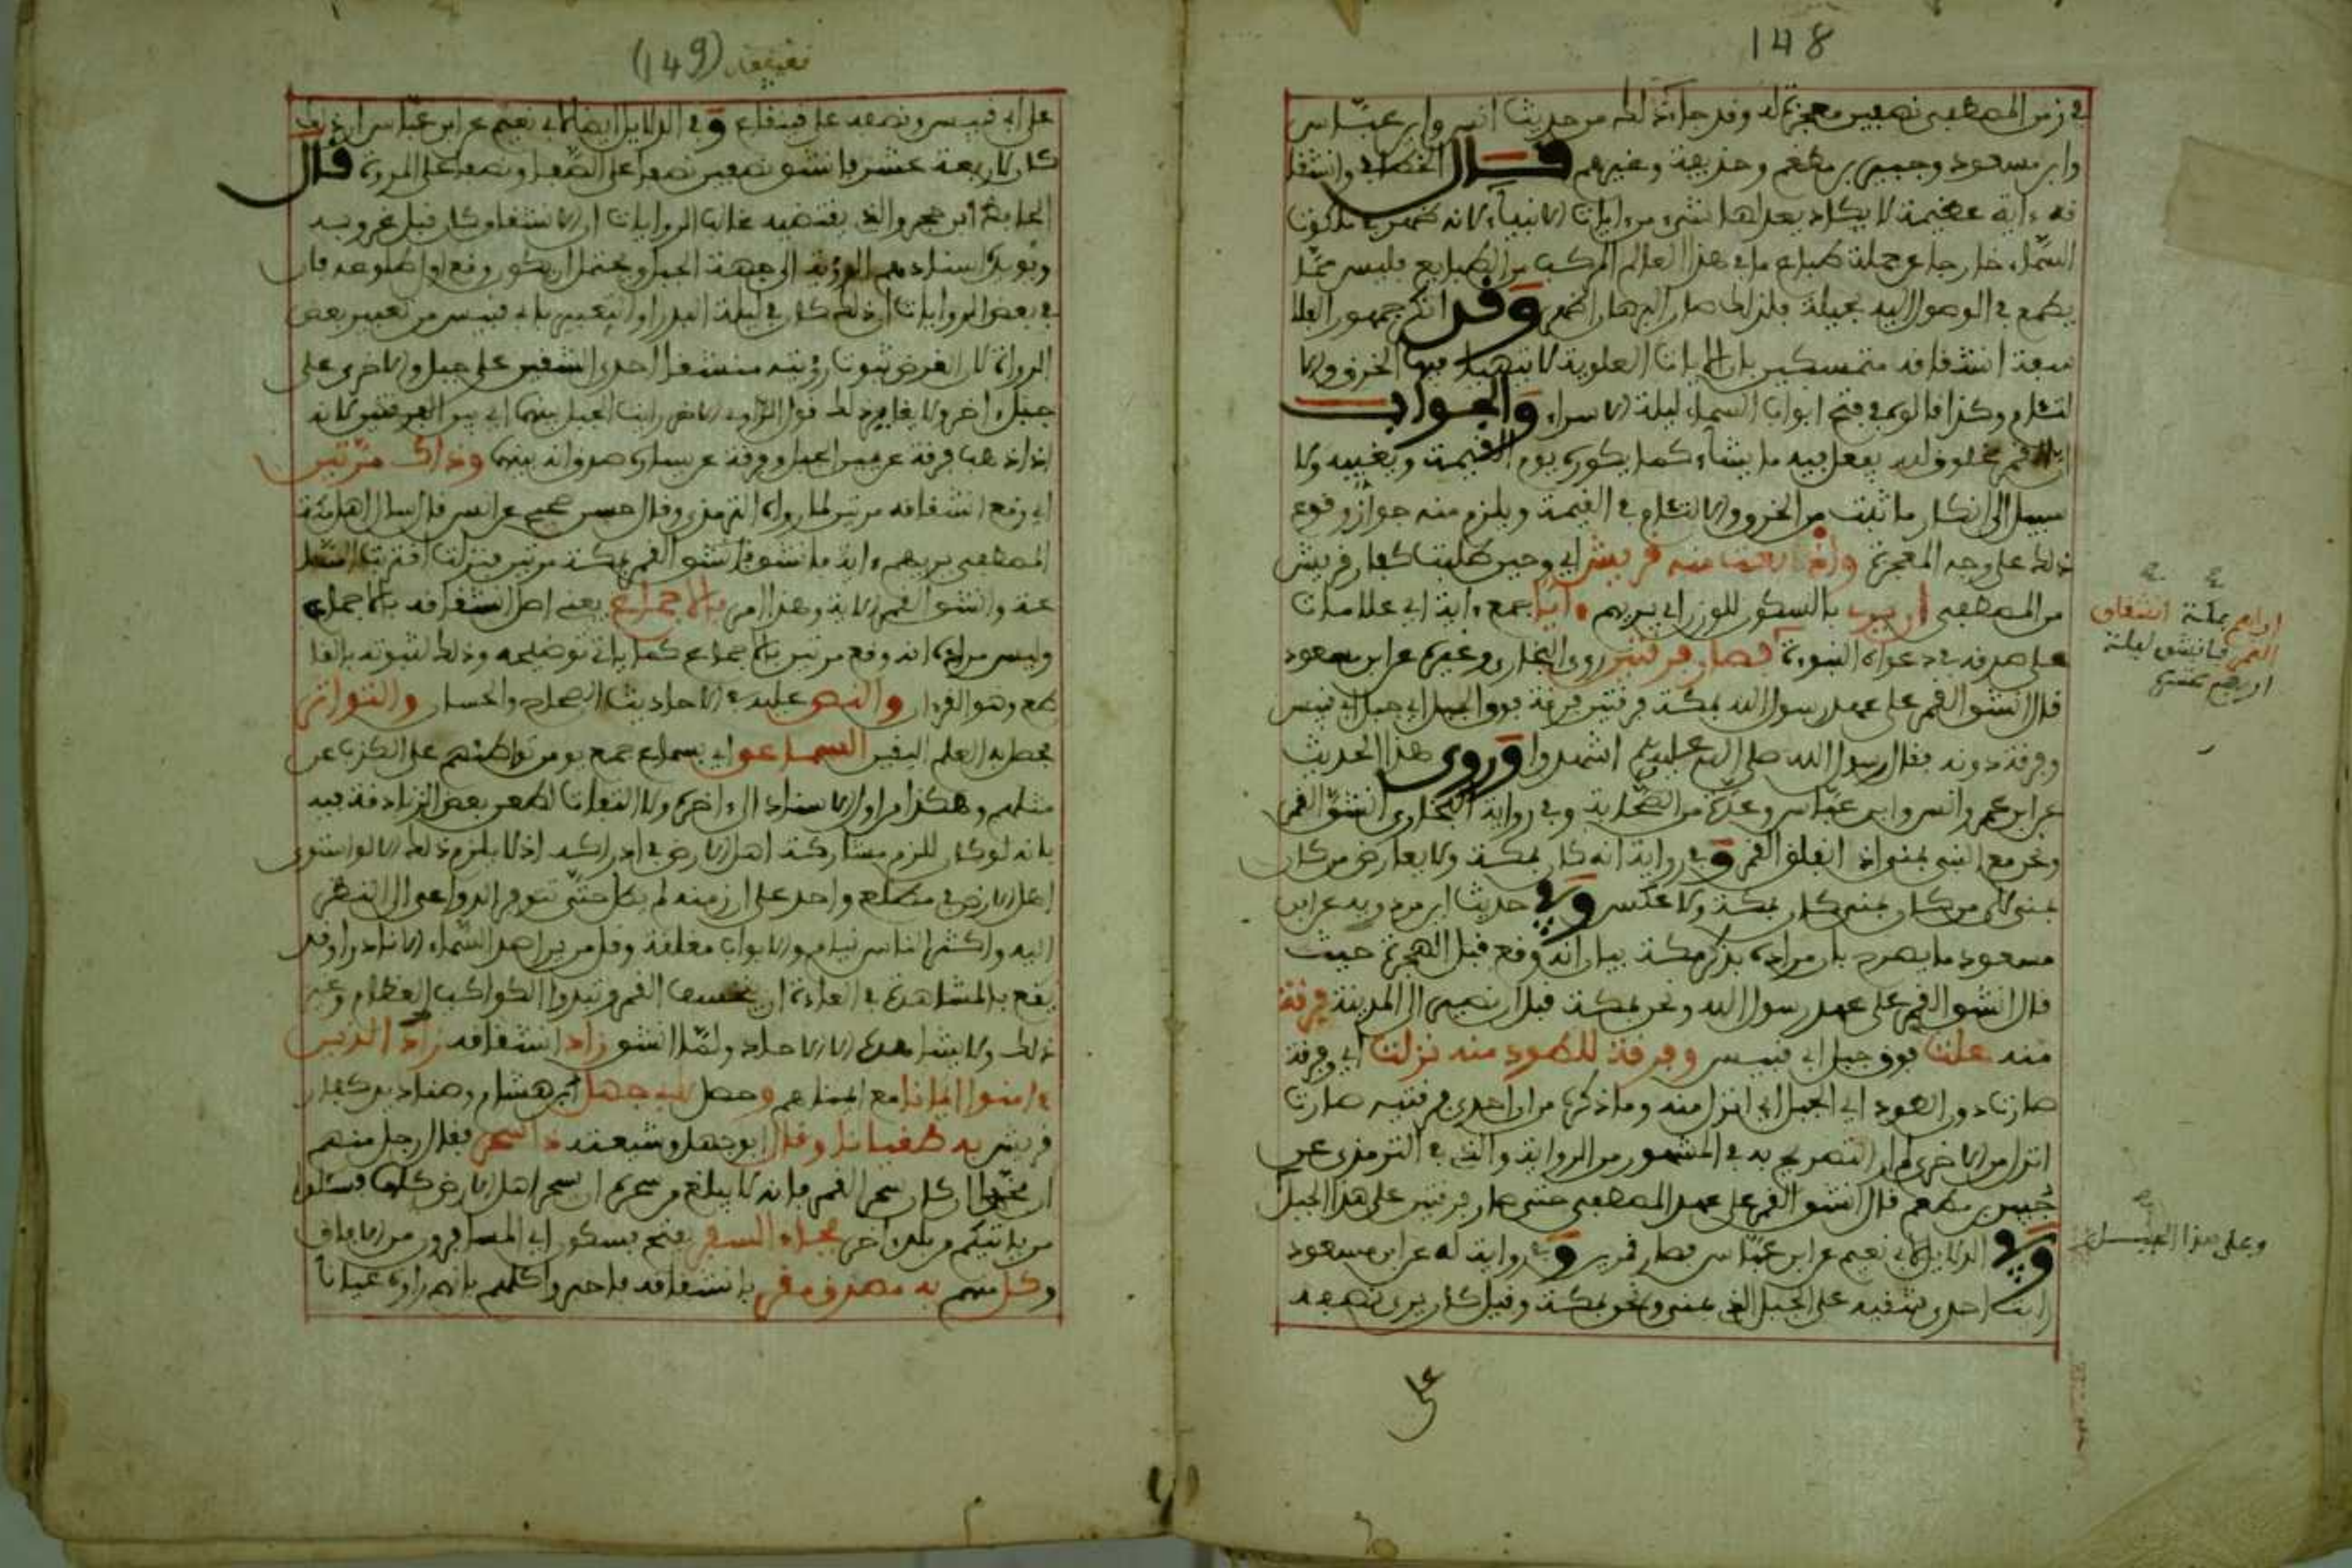 148
في زمن المصطفى نصفين معجزة له وقد جاء ذلك من حديث انس وابن عباس
وابن مسعود وجبير بن مطعم وحذيفة وغيرهم قال الخطابي وانشقا
قه ءاية عظيمة لا يكاد يعدلها شيء من ءايات الانبياء لانه ظهر في ملكوت
السماء خارجا عن جملة طباع ما في هذا العالم المركب من الطبايع فليس مما
يطمع في الوصول اليه بحيلة فلذلك صار البرهان اظهر وقد انكر جمهور الفلا
سفة انشقاقه متمسكين بان الايات العلوية لا يتهيأ فيها الخرق والا
لتئام وكذا قالوه في فتح ابواب السماء ليلة الاسراء والجواب
ان القمر مخلوق لله يفعل فيه ما يشاء كما يكوره يوم القيمة ويفنيه ولا
سبيل الى انكار ما ثبت من الخرق والالتئام في القيمة ويلزم منه جواز وقوع
ذلك على وجه المعجزة واذ بغت منه قريش اي وحين طلبت كفار قريش
من المصطفى ان يرى بالسكون للوزن اي يريهم ءايا جمع ءاية اي علامات
على صدقه في دعواه النبوءة فصار فرقتين روى البخاري وغيره عن ابن مسعود
قال انشق القمر على عهد رسول الله بمكة فرقتين فرقة فوق الجبل اي جبل ابي قبيس
وفرقة دونه فقال رسول الله صلى الله عليه وسلم اشهدوا وروى هذا الحديث
عن ابن عمر وانس وابن عباس وعدة من الصحابة وفي رواية البخاري انشق القمر
ونحن مع النبي بمنى اذ انفلق القمر وفي رواية انه كان بمكة ولا يعارض من كان
بمنى لان من كان بمنى كان بمكة ولا عكس وفي حديث ابن مردويه عن ابن
مسعود ما يصرح بان مراده بذكر مكة بيان انه وقع قبل الهجرة حيث
قال انشق القمر على عهد رسول الله ونحن بمكة قبل ان نصير الى المدينة فرقة
منه علت فوق جبل ابي قبيس وفرقة للطود منه نزلت اي وفرقة
صارت دون الطود اي الجبل اي انزل منه وما ذكره من ان احدى فرقتيه صارت
انزل من الاخرى لم ار التصريح به في المشهور من الرواية والذي في الترمذي عن
جبير بن مطعم قال انشق القمر على عهد المصطفى حتى صار فرقتين على هذا الجبل
وفي الدلايل لابي نعيم عن ابن عباس فصار قمرين وفي رواية له عن ابن مسعود
رايت احدى شقيه على الجبل الذي بمنى ونحن بمكة وقيل كان يرى نصفه
اراهم بمكة انشقاق
القمر فانشق ليلة
اربع عشرة
وعلى هذا الجبل
على
(149)
على ابي قبيس ونصفه على قينقاع وفي الدلايل ايضا لابي نعيم عن ابن عباس ان ذلك
كان لاربعة عشر فانشق نصفين نصفا على الصفا ونصفا على المروة قال
الحافظ ابن حجر والذي يقتضيه غالب الروايات ان الانشقاق كان قبل غروبه
ويؤيده اسنادهم الرؤية الى جهة الجبل ويحتمل ان يكون وقع اول طلوعه فان
في بعض الروايات ان ذلك كان في ليلة البدر او التعبير بابي قبيس من تعبير بعض
الرواة لان الغرض ثبوت رؤيته منشقا احدى الشقين على جبل والاخرى على
جبل ءاخر ولا يغاير ذلك قول الراوي الاخر رايت الجبل بينهما اي بين الفرقتين لانه
اذا ذهبت فرقة عن يمين الجبل وفرقة عن يساره صدق انه بينهما وذاك مرتين
اي وقع انشقاقه مرتين لما رواه الترمذي وقال حسن صحيح عن انس قال سال اهل مكة
المصطفى يريهم ءاية فانشق القمر بمكة مرتين فنزلت اقتربت السا
عة وانشق القمر الاية وهذا امر بالاجماع يعني اصل انشقاقه بالاجماع
وليس مراده انه وقع مرتين بالاجماع كما ياتي توضيحه وذلك لثبوته بالقا
طع وهو القرءان والنص عليه في الاحاديث الصحاح والحسان والتواتر
يحصل به العلم اليقين السماعي اي بسماع جمع يومن تواطئهم على الكذب عن
مثلهم وهكذا من اول الاسناد الى ءاخره ولا التفات لطعن بعض الزنادقة فيه
بانه لو كان للزم مشاركة اهل الارض في ادراكه اذ لا يلزم ذلك الا لو استوى
اهل الارض في مطلع واحد على ان زمنه لم يطل حتى تتوفر الدواعي الى النظر
اليه واكثر الناس نيام والابواب مغلقة وقل من يراصد السماء الا نادرا وقد
يقع بالمشاهدة في العادة ان يخسف القمر وتبدوا الكواكب العظام وغير
ذلك ولا يشاهدها الا الاحاد ولما انشق زاد انشقاقه زاد الذين
ءامنوا ايمانا مع ايمانهم وحصل لابي جهل ابن هشام وصناديد كفار
قريش به طغيانا وقال ابو جهل وشيعته ذا سحر فقال رجل منهم
ان محمدا ان كان سحر القمر فانه لا يبلغ من سحره ان يسحر اهل الارض كلها فسئلوا
من ياتيكم من بلد ءاخر فجاء السفر بفتح فسكون اي المسافرون من الافاق
وكل منهم به مصدق مقر بانشقاقه فاخبروا كلهم بانهم راوه عيانا